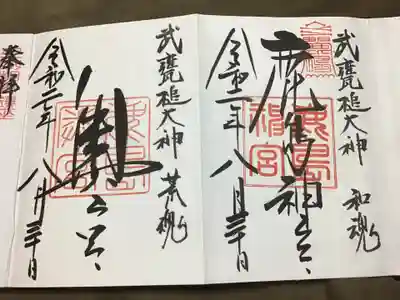 武甕槌大神 和魂
鹿島神宮
鹿島神宮
令和二年八月三十日
武甕槌大神 荒魂
奥宮
令和二年八月三十日
奉拝